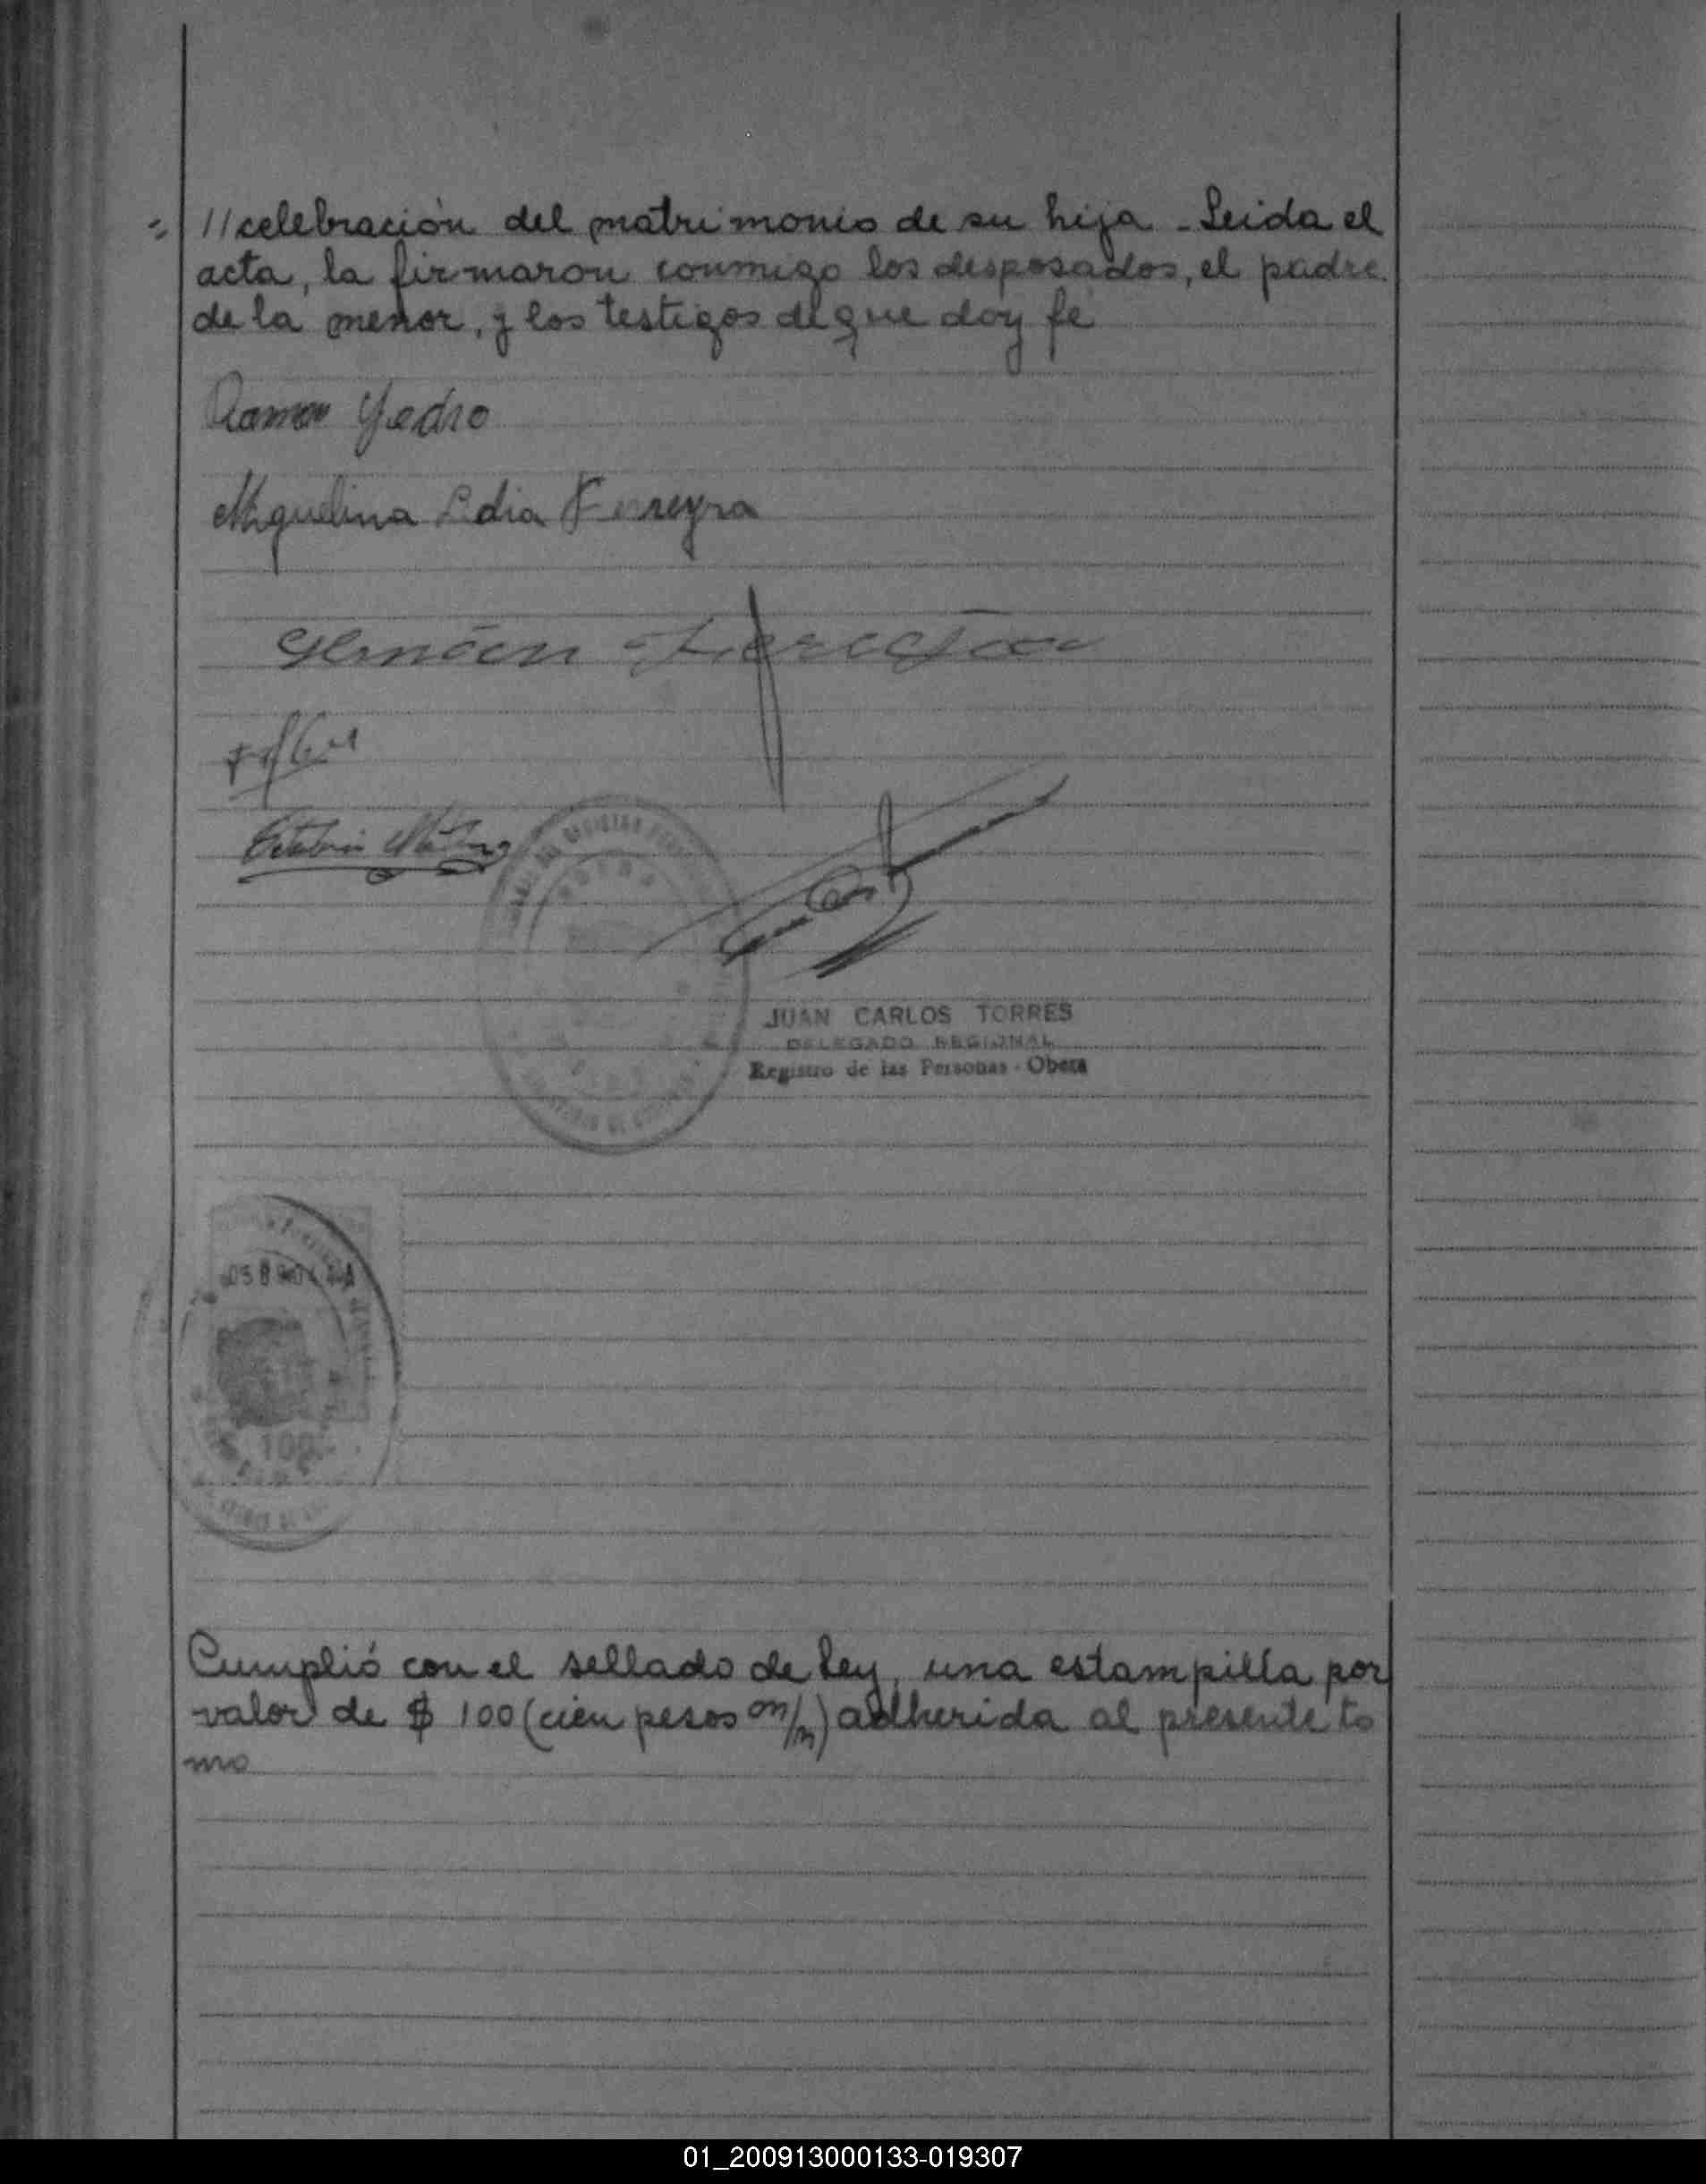 //celebración del matrimonio de su hija - Leida el
acta, la firmaron conmigo los desposados, el padre
de la menor, y los testigos de que doy fé
Ramon Yedro
Miquelina Ferreyra
JUAN CARLOS TORRES
DELEGADO REGIONAL
Registro de las Personas - Obera
100
Cumplió con el sellado de ley, una estampilla por
valor de $ 100 (cien pesos m/n) adherida al presente to
mo
01_200913000133-019307